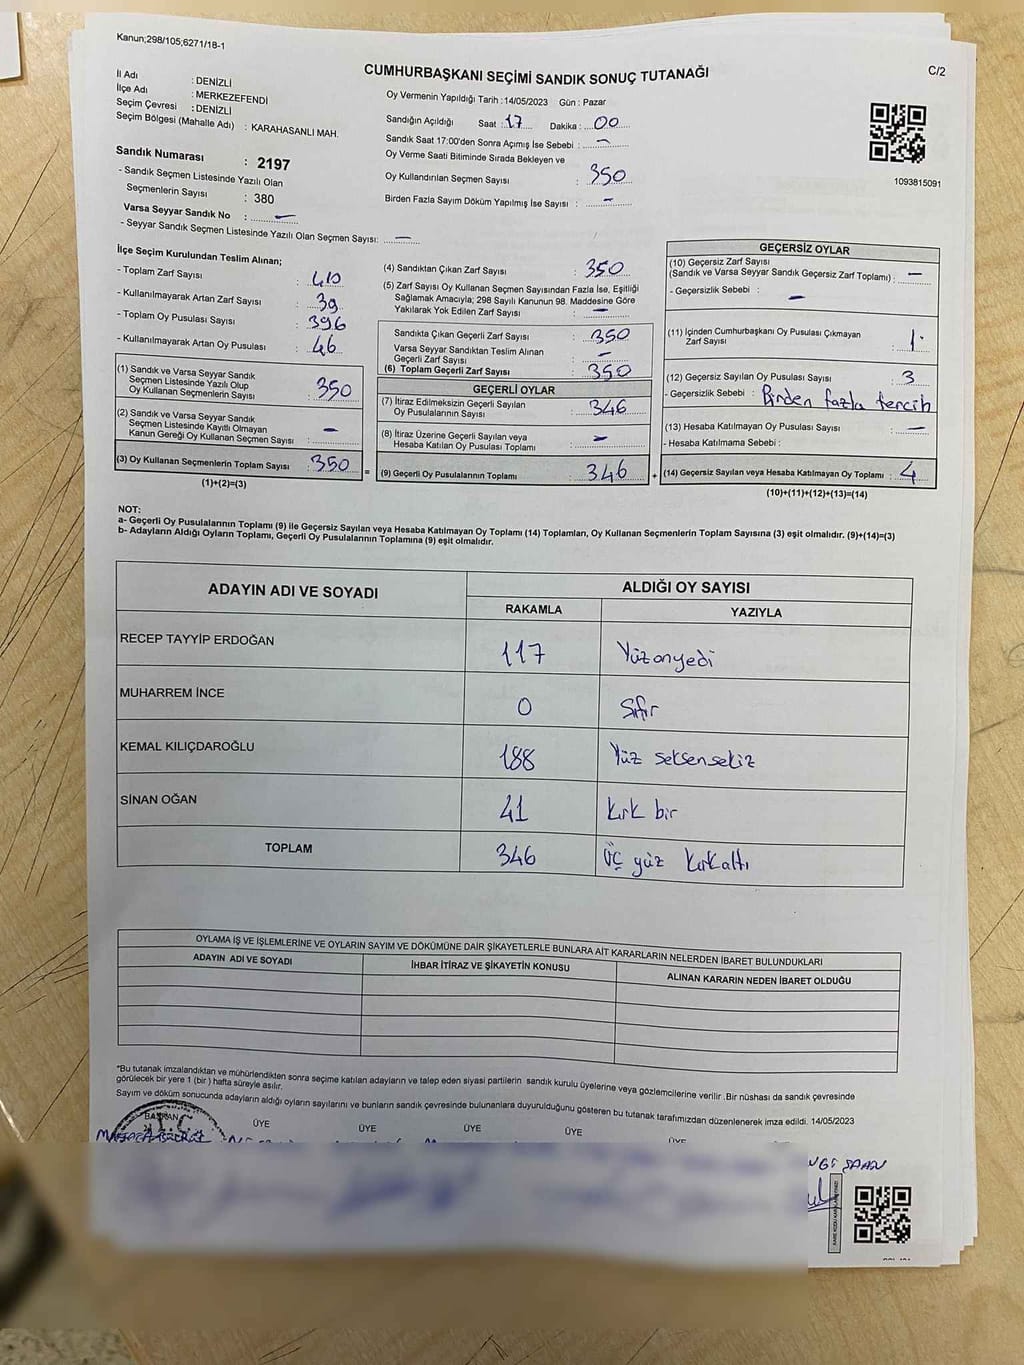 Kanun;298/105;6271/18-1
CUMHURBAŞKANI SEÇİMİ SANDIK SONUÇ TUTANAĞI
C/2
İl Adı : DENİZLİ
İlçe Adı : MERKEZEFENDİ
Seçim Çevresi : DENİZLİ
Seçim Bölgesi (Mahalle Adı) : KARAHASANLI MAH.
Sandık Numarası : 2197
- Sandık Seçmen Listesinde Yazılı Olan
Seçmenlerin Sayısı : 380
Varsa Seyyar Sandık No : —
- Seyyar Sandık Seçmen Listesinde Yazılı Olan Seçmen Sayısı: —
Oy Vermenin Yapıldığı Tarih : 14/05/2023 Gün : Pazar
Sandığın Açıldığı Saat : 17 Dakika : 00
Sandık Saat 17:00'den Sonra Açımış İse Sebebi : —
Oy Verme Saati Bitiminde Sırada Bekleyen ve
Oy Kullandırılan Seçmen Sayısı : 350
Birden Fazla Sayım Döküm Yapılmış İse Sayısı : —
1093815091
İlçe Seçim Kurulundan Teslim Alınan;
- Toplam Zarf Sayısı : 410
- Kullanılmayarak Artan Zarf Sayısı : 39
- Toplam Oy Pusulası Sayısı : 396
- Kullanılmayarak Artan Oy Pusulası : 46
(1) Sandık ve Varsa Seyyar Sandık
Seçmen Listesinde Yazılı Olup
Oy Kullanan Seçmenlerin Sayısı : 350
(2) Sandık ve Varsa Seyyar Sandık
Seçmen Listesinde Kayıtlı Olmayan
Kanun Gereği Oy Kullanan Seçmen Sayısı : —
(3) Oy Kullanan Seçmenlerin Toplam Sayısı : 350 =
(1)+(2)=(3)
(4) Sandıktan Çıkan Zarf Sayısı : 350
(5) Zarf Sayısı Oy Kullanan Seçmen Sayısından Fazla İse, Eşitliği
Sağlamak Amacıyla; 298 Sayılı Kanunun 98. Maddesine Göre
Yakılarak Yok Edilen Zarf Sayısı : —
Sandıkta Çıkan Geçerli Zarf Sayısı : 350
Varsa Seyyar Sandıktan Teslim Alınan
Geçerli Zarf Sayısı : —
(6) Toplam Geçerli Zarf Sayısı : 350
GEÇERLİ OYLAR
(7) İtiraz Edilmeksizin Geçerli Sayılan
Oy Pusulalarının Sayısı : 346
(8) İtiraz Üzerine Geçerli Sayılan veya
Hesaba Katılan Oy Pusulası Toplamı : —
(9) Geçerli Oy Pusulalarının Toplamı : 346 +
GEÇERSİZ OYLAR
(10) Geçersiz Zarf Sayısı
(Sandık ve Varsa Seyyar Sandık Geçersiz Zarf Toplamı) : —
- Geçersizlik Sebebi : —
(11) İçinden Cumhurbaşkanı Oy Pusulası Çıkmayan
Zarf Sayısı : 1
(12) Geçersiz Sayılan Oy Pusulası Sayısı : 3
- Geçersizlik Sebebi : Birden fazla tercih
(13) Hesaba Katılmayan Oy Pusulası Sayısı : —
- Hesaba Katılmama Sebebi :
(14) Geçersiz Sayılan veya Hesaba Katılmayan Oy Toplamı : 4
(10)+(11)+(12)+(13)=(14)
NOT:
a- Geçerli Oy Pusulalarının Toplamı (9) ile Geçersiz Sayılan veya Hesaba Katılmayan Oy Toplamı (14) Toplamları, Oy Kullanan Seçmenlerin Toplam Sayısına (3) eşit olmalıdır. (9)+(14)=(3)
b- Adayların Aldığı Oyların Toplamı, Geçerli Oy Pusulalarının Toplamına (9) eşit olmalıdır.
ADAYIN ADI VE SOYADI ALDIĞI OY SAYISI
RAKAMLA YAZIYLA
RECEP TAYYİP ERDOĞAN 117 Yüzonyedi
MUHARREM İNCE 0 Sıfır
KEMAL KILIÇDAROĞLU 188 Yüz seksensekiz
SİNAN OĞAN 41 Kırk bir
TOPLAM 346 Üç yüz kırkaltı
OYLAMA İŞ VE İŞLEMLERİNE VE OYLARIN SAYIM VE DÖKÜMÜNE DAİR ŞİKAYETLERLE BUNLARA AİT KARARLARIN NELERDEN İBARET BULUNDUKLARI
ADAYIN ADI VE SOYADI İHBAR İTİRAZ VE ŞİKAYETİN KONUSU ALINAN KARARIN NEDEN İBARET OLDUĞU
*Bu tutanak imzalandıktan ve mühürlendikten sonra seçime katılan adayların ve talep eden siyasi partilerin sandık kurulu üyelerine veya gözlemcilerine verilir .Bir nüshası da sandık çevresinde
görülecek bir yere 1 (bir ) hafta süreyle asılır.
Sayım ve döküm sonucunda adayların aldığı oyların sayılarını ve bunların sandık çevresinde bulunanlara duyurulduğunu gösteren bu tutanak tarafımızdan düzenlenerek imza edildi. 14/05/2023
BAŞKAN ÜYE ÜYE ÜYE ÜYE ÜYE
T.C.